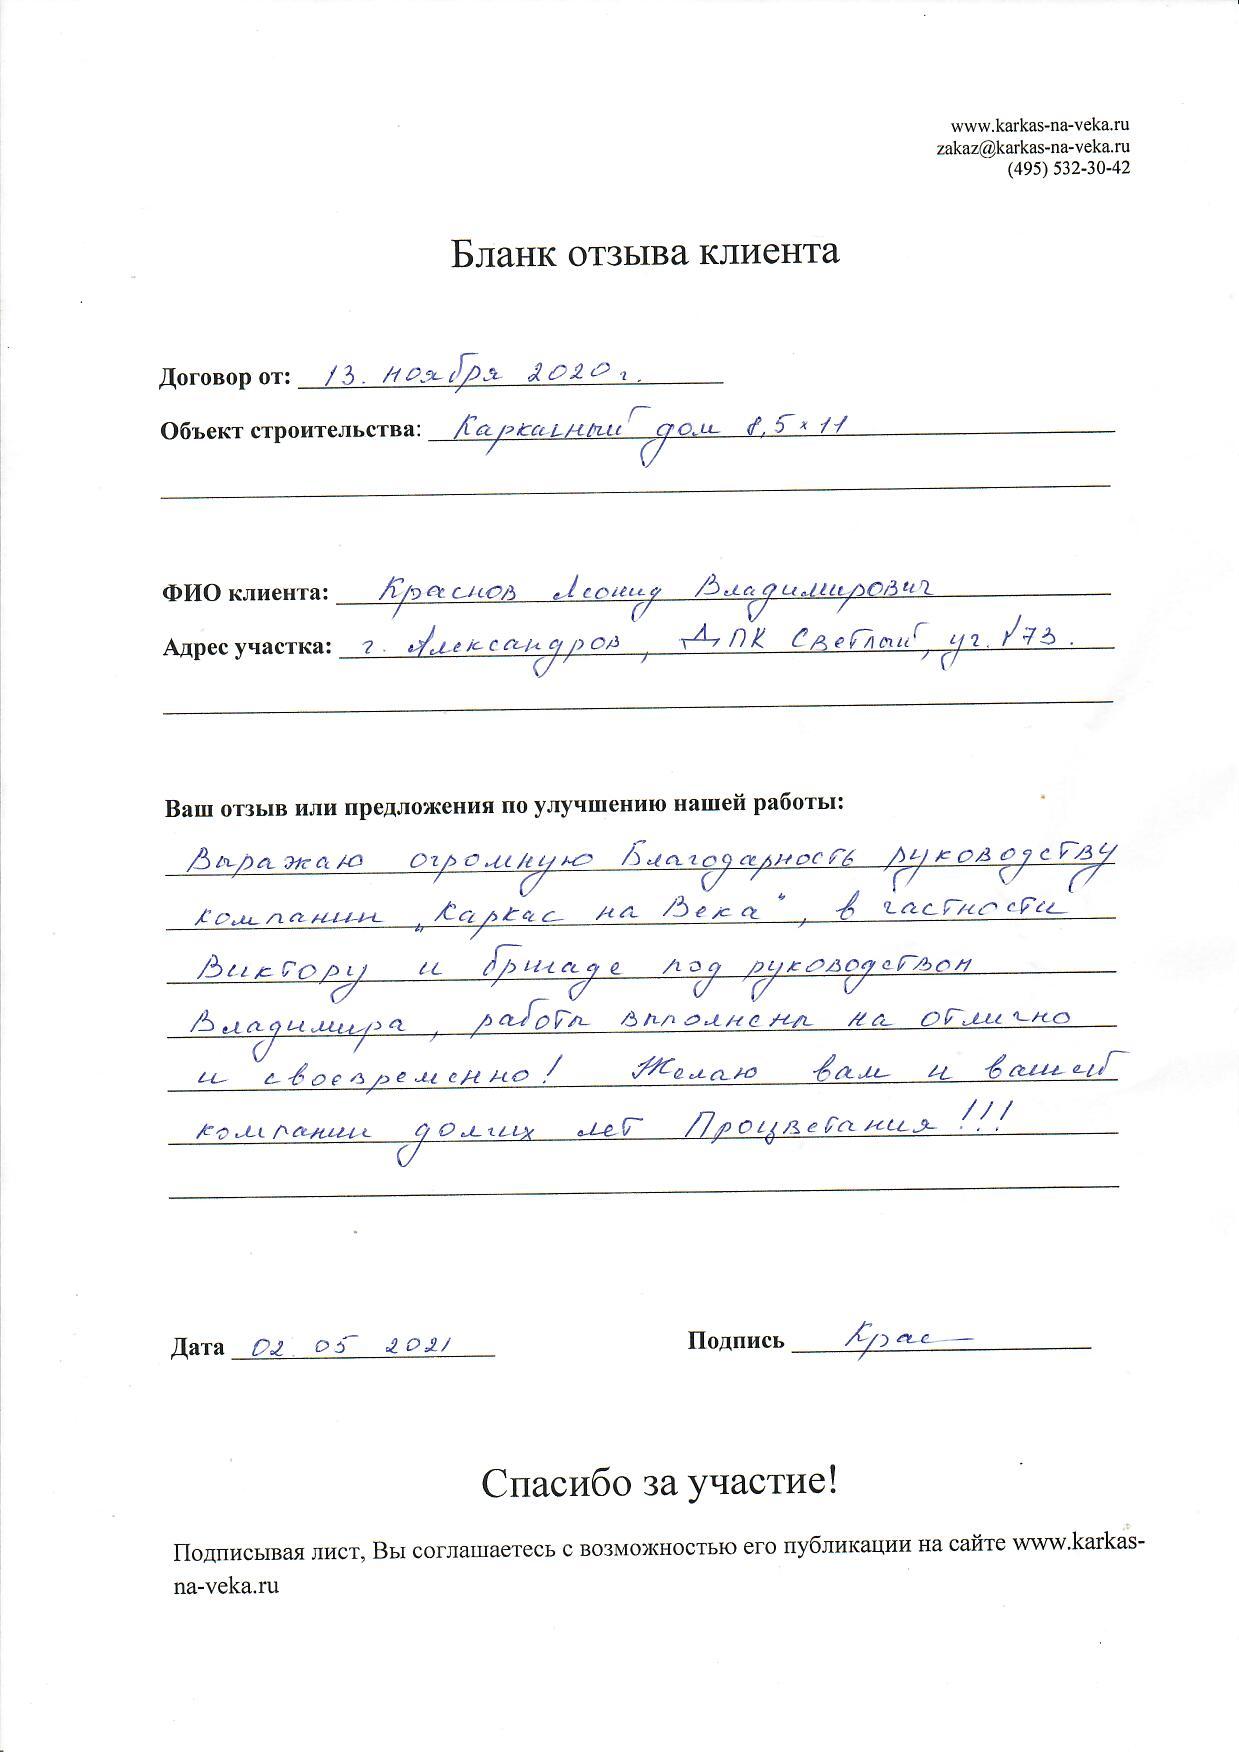 www.karkas-na-veka.ru
zakaz@karkas-na-veka.ru
(495) 532-30-42
Бланк отзыва клиента
Договор от: 13. ноября 2020 г.
Объект строительства: Каркасный дом 8,5 × 11
ФИО клиента: Краснов Леонид Владимирович
Адрес участка: г. Александров, ДПК Светлый, уч. №73.
Ваш отзыв или предложения по улучшению нашей работы:
Выражаю огромную Благодарность руководству
компании „Каркас на Века", в частности
Виктору и бригаде под руководством
Владимира, работы выполнены на отлично
и своевременно! Желаю вам и вашей
компании долгих лет Процветания!!!
Дата 02 05 2021 Подпись Крас
Спасибо за участие!
Подписывая лист, Вы соглашаетесь с возможностью его публикации на сайте www.karkas-
na-veka.ru